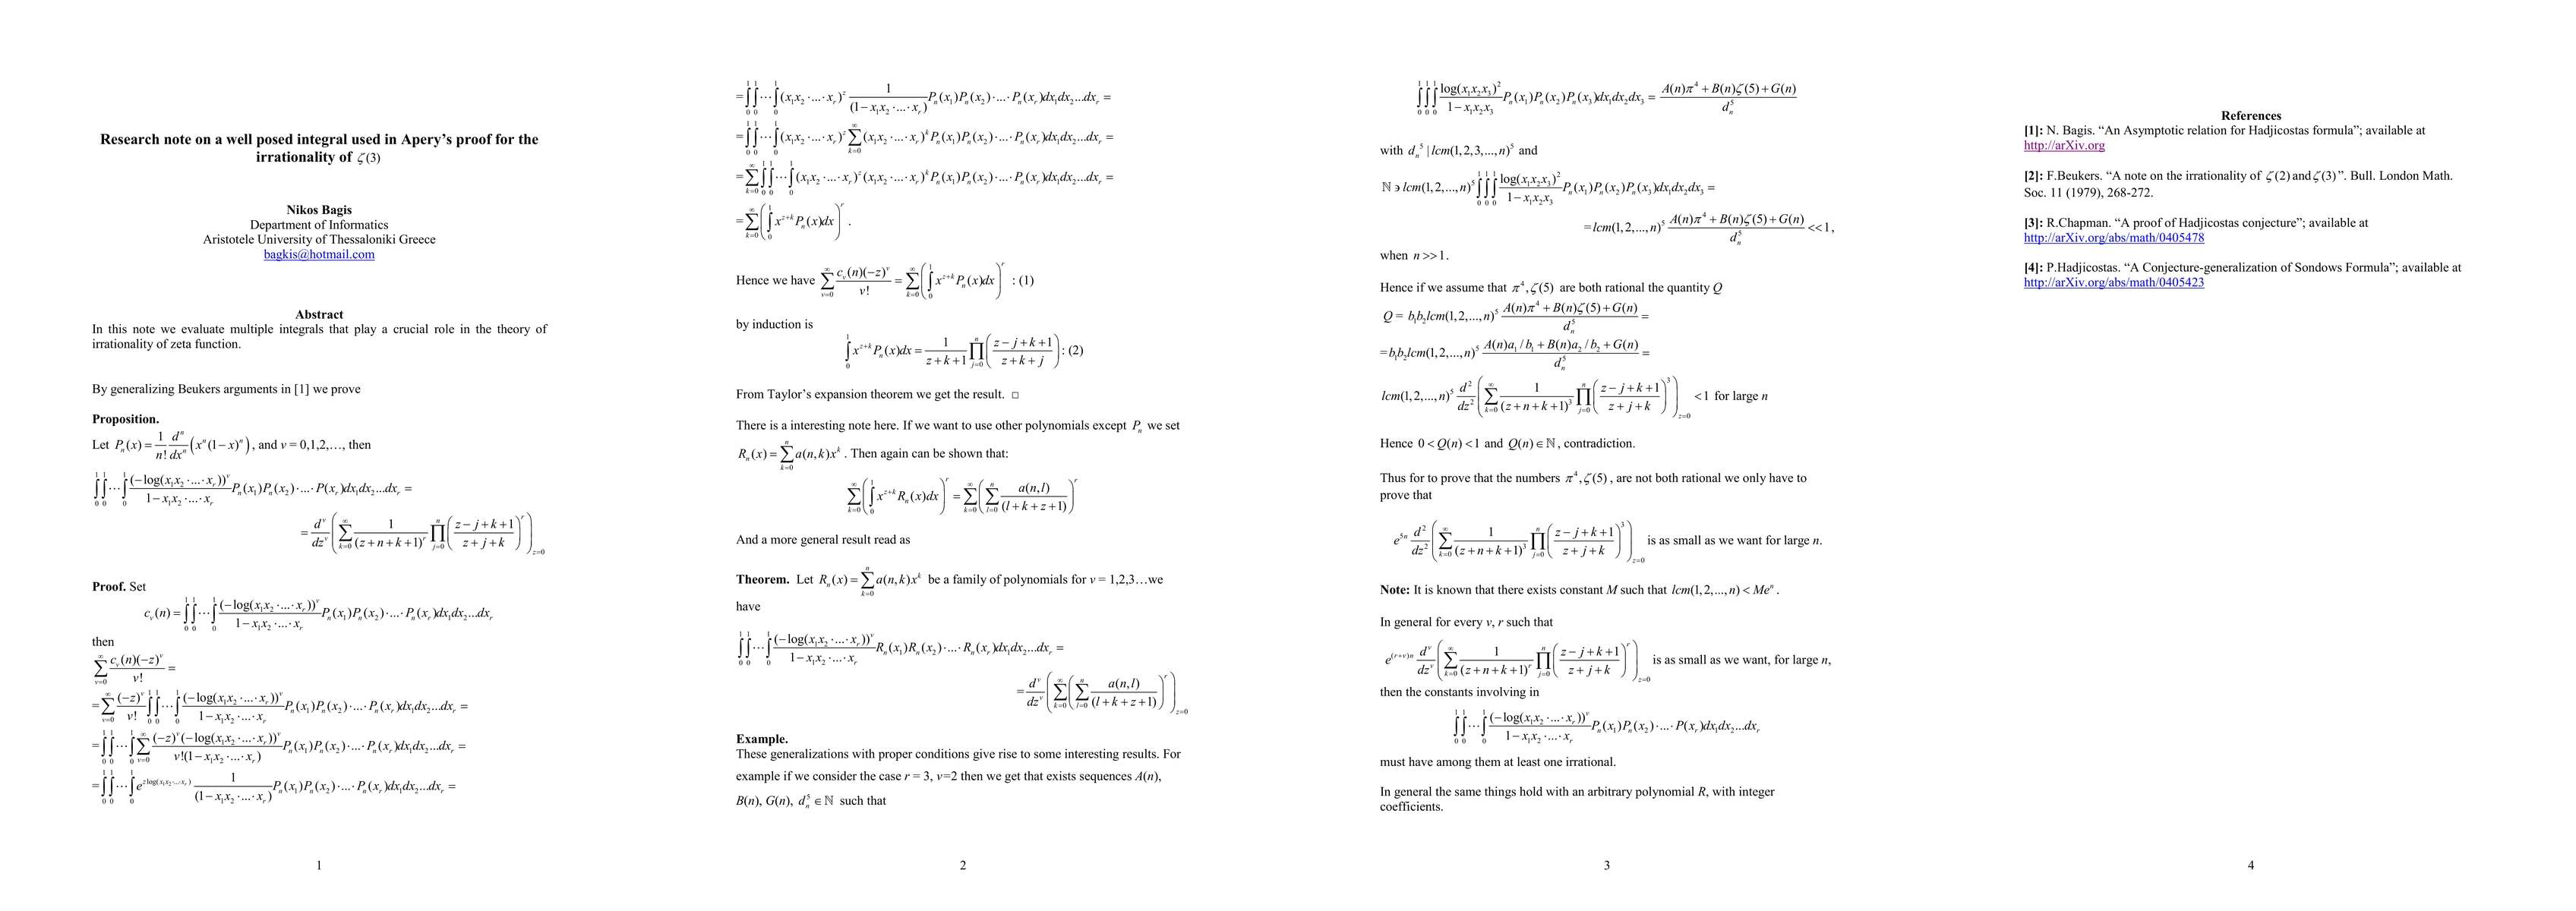 Research note on a well posed integral used in Apery's proof for the
irrationality of ζ(3)
Nikos Bagis
Department of Informatics
Aristotele University of Thessaloniki Greece
bagkis@hotmail.com
Abstract
In this note we evaluate multiple integrals that play a crucial role in the theory of
irrationality of zeta function.
By generalizing Beukers arguments in [1] we prove
Proposition.
Let P_n(x) = \frac{1}{n!} \frac{d^n}{dx^n} (x^n(1−x)^n), and v = 0,1,2,…, then
\int_0^1 \int_0^1 ⋯ \int_0^1 \frac{(−log(x_1x_2·...·x_r))^v}{1−x_1x_2·...·x_r} P_n(x_1)P_n(x_2)·...·P(x_r)dx_1dx_2...dx_r =
= \frac{d^v}{dz^v} \left( \sum_{k=0}^∞ \frac{1}{(z+n+k+1)^r} \prod_{j=0}^n \left( \frac{z−j+k+1}{z+j+k} \right)^r \right)_{z=0}
Proof. Set
c_v(n) = \int_0^1 \int_0^1 ⋯ \int_0^1 \frac{(−log(x_1x_2·...·x_r))^v}{1−x_1x_2·...·x_r} P_n(x_1)P_n(x_2)·...·P_n(x_r)dx_1dx_2...dx_r
then
\sum_{v=0}^∞ \frac{c_v(n)(−z)^v}{v!} =
= \sum_{v=0}^∞ \frac{(−z)^v}{v!} \int_0^1 \int_0^1 ⋯ \int_0^1 \frac{(−log(x_1x_2·...·x_r))^v}{1−x_1x_2·...·x_r} P_n(x_1)P_n(x_2)·...·P_n(x_r)dx_1dx_2...dx_r =
= \int_0^1 \int_0^1 ⋯ \int_0^1 \sum_{v=0}^∞ \frac{(−z)^v(−log(x_1x_2·...·x_r))^v}{v!(1−x_1x_2·...·x_r)} P_n(x_1)P_n(x_2)·...·P_n(x_r)dx_1dx_2...dx_r =
= \int_0^1 \int_0^1 ⋯ \int_0^1 e^{z log(x_1x_2·...·x_r)} \frac{1}{(1−x_1x_2·...·x_r)} P_n(x_1)P_n(x_2)·...·P_n(x_r)dx_1dx_2...dx_r =
1
= \int_0^1 \int_0^1 ⋯ \int_0^1 (x_1x_2·...·x_r)^z \frac{1}{(1−x_1x_2·...·x_r)} P_n(x_1)P_n(x_2)·...·P_n(x_r)dx_1dx_2...dx_r =
= \int_0^1 \int_0^1 ⋯ \int_0^1 (x_1x_2·...·x_r)^z \sum_{k=0}^∞ (x_1x_2·...·x_r)^k P_n(x_1)P_n(x_2)·...·P_n(x_r)dx_1dx_2...dx_r =
= \sum_{k=0}^∞ \int_0^1 \int_0^1 ⋯ \int_0^1 (x_1x_2·...·x_r)^z (x_1x_2·...·x_r)^k P_n(x_1)P_n(x_2)·...·P_n(x_r)dx_1dx_2...dx_r =
= \sum_{k=0}^∞ \left( \int_0^1 x^{z+k} P_n(x)dx \right)^r .
Hence we have \sum_{v=0}^∞ \frac{c_v(n)(−z)^v}{v!} = \sum_{k=0}^∞ \left( \int_0^1 x^{z+k} P_n(x)dx \right)^r : (1)
by induction is
\int_0^1 x^{z+k} P_n(x)dx = \frac{1}{z+k+1} \prod_{j=0}^n \left( \frac{z−j+k+1}{z+k+j} \right) : (2)
From Taylor's expansion theorem we get the result. □
There is a interesting note here. If we want to use other polynomials except P_n we set
R_n(x) = \sum_{k=0}^n a(n,k)x^k . Then again can be shown that:
\sum_{k=0}^∞ \left( \int_0^1 x^{z+k} R_n(x)dx \right)^r = \sum_{k=0}^∞ \left( \sum_{l=0}^n \frac{a(n,l)}{(l+k+z+1)} \right)^r
And a more general result read as
Theorem. Let R_n(x) = \sum_{k=0}^n a(n,k)x^k be a family of polynomials for v = 1,2,3…we
have
\int_0^1 \int_0^1 ⋯ \int_0^1 \frac{(−log(x_1x_2·...·x_r))^v}{1−x_1x_2·...·x_r} R_n(x_1)R_n(x_2)·...·R_n(x_r)dx_1dx_2...dx_r =
= \frac{d^v}{dz^v} \left( \sum_{k=0}^∞ \left( \sum_{l=0}^n \frac{a(n,l)}{(l+k+z+1)} \right)^r \right)_{z=0}
Example.
These generalizations with proper conditions give rise to some interesting results. For
example if we consider the case r = 3, v=2 then we get that exists sequences A(n),
B(n), G(n), d_n^5 ∈ ℕ such that
2
\int_0^1 \int_0^1 \int_0^1 \frac{log(x_1x_2x_3)^2}{1−x_1x_2x_3} P_n(x_1)P_n(x_2)P_n(x_3)dx_1dx_2dx_3 = \frac{A(n)π^4 + B(n)ζ(5) + G(n)}{d_n^5}
with d_n^5 | lcm(1,2,3,...,n)^5 and
ℕ ∍ lcm(1,2,...,n)^5 \int_0^1 \int_0^1 \int_0^1 \frac{log(x_1x_2x_3)^2}{1−x_1x_2x_3} P_n(x_1)P_n(x_2)P_n(x_3)dx_1dx_2dx_3 =
= lcm(1,2,...,n)^5 \frac{A(n)π^4 + B(n)ζ(5) + G(n)}{d_n^5} <<1,
when n >> 1.
Hence if we assume that π^4, ζ(5) are both rational the quantity Q
Q = b_1b_2lcm(1,2,...,n)^5 \frac{A(n)π^4 + B(n)ζ(5) + G(n)}{d_n^5} =
= b_1b_2lcm(1,2,...,n)^5 \frac{A(n)a_1/b_1 + B(n)a_2/b_2 + G(n)}{d_n^5} =
lcm(1,2,...,n)^5 \frac{d^2}{dz^2} \left( \sum_{k=0}^∞ \frac{1}{(z+n+k+1)^3} \prod_{j=0}^n \left( \frac{z−j+k+1}{z+j+k} \right)^3 \right)_{z=0} <1 for large n
Hence 0 < Q(n) < 1 and Q(n) ∈ ℕ, contradiction.
Thus for to prove that the numbers π^4, ζ(5), are not both rational we only have to
prove that
e^{5n} \frac{d^2}{dz^2} \left( \sum_{k=0}^∞ \frac{1}{(z+n+k+1)^3} \prod_{j=0}^n \left( \frac{z−j+k+1}{z+j+k} \right)^3 \right)_{z=0} is as small as we want for large n.
Note: It is known that there exists constant M such that lcm(1,2,...,n) < Me^n .
In general for every v, r such that
e^{(r+v)n} \frac{d^v}{dz^v} \left( \sum_{k=0}^∞ \frac{1}{(z+n+k+1)^r} \prod_{j=0}^n \left( \frac{z−j+k+1}{z+j+k} \right)^r \right)_{z=0} is as small as we want, for large n,
then the constants involving in
\int_0^1 \int_0^1 ⋯ \int_0^1 \frac{(−log(x_1x_2·...·x_r))^v}{1−x_1x_2·...·x_r} P_n(x_1)P_n(x_2)·...·P(x_r)dx_1dx_2...dx_r
must have among them at least one irrational.
In general the same things hold with an arbitrary polynomial R, with integer
coefficients.
3
References
[1]: N. Bagis. “An Asymptotic relation for Hadjicostas formula”; available at
http://arXiv.org
[2]: F.Beukers. “A note on the irrationality of ζ(2) and ζ(3)”. Bull. London Math.
Soc. 11 (1979), 268-272.
[3]: R.Chapman. “A proof of Hadjicostas conjecture”; available at
http://arXiv.org/abs/math/0405478
[4]: P.Hadjicostas. “A Conjecture-generalization of Sondows Formula”; available at
http://arXiv.org/abs/math/0405423
4